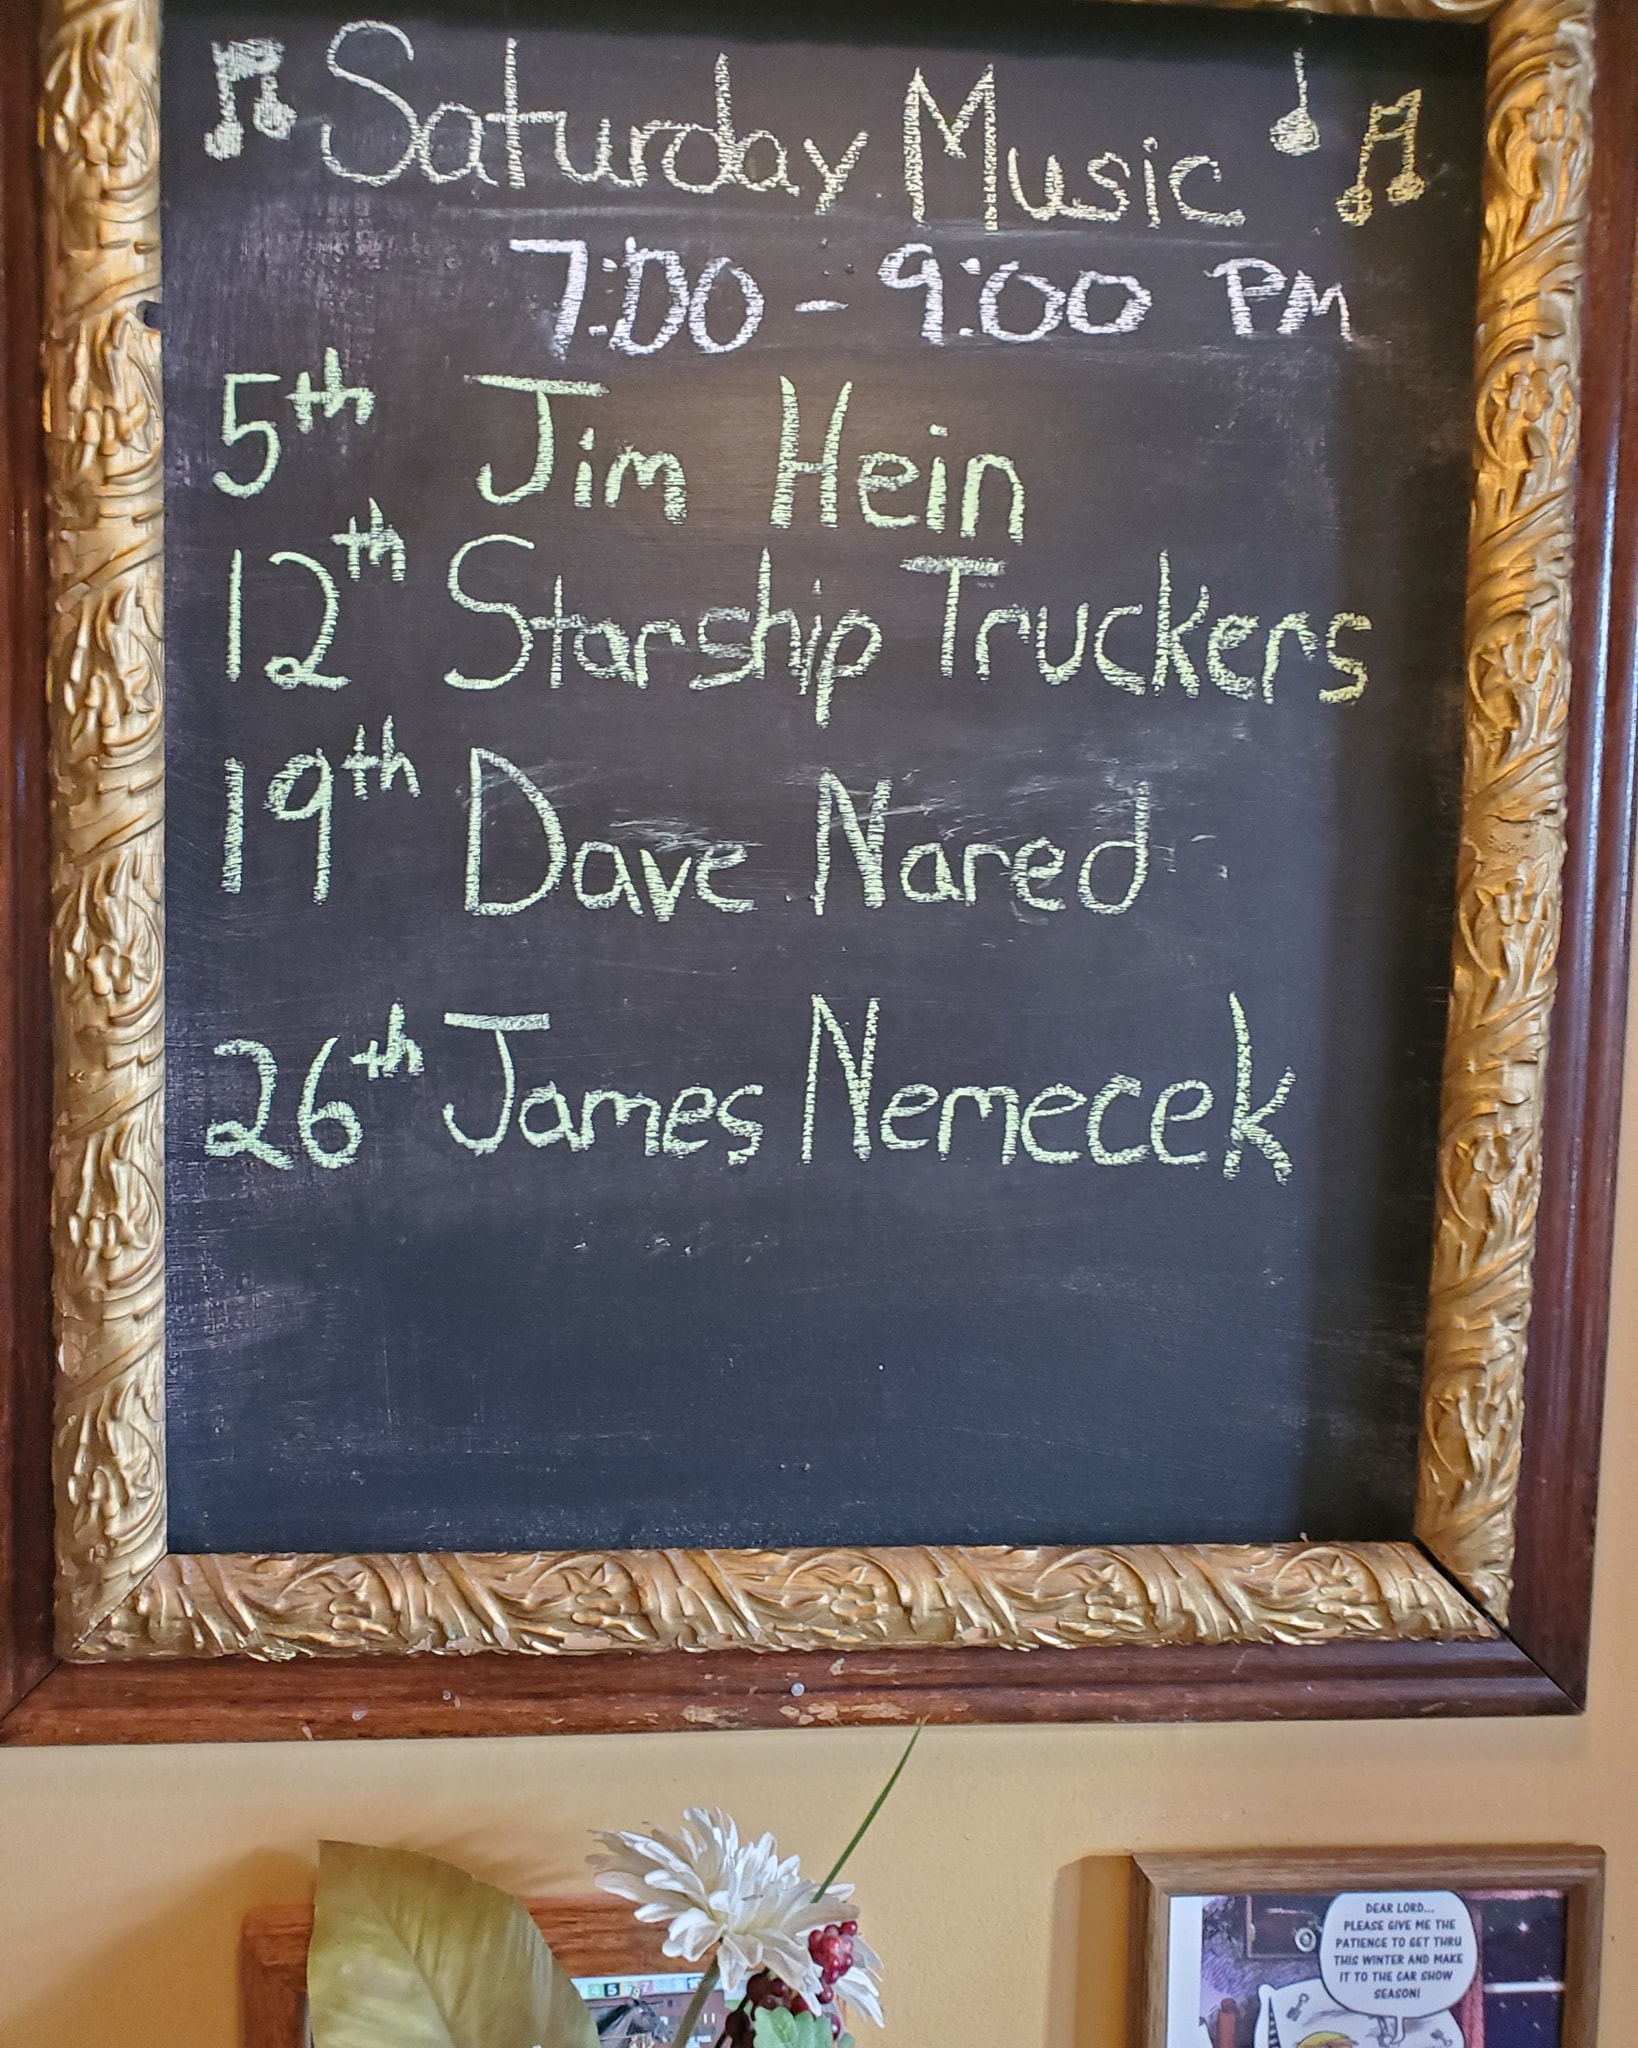 Saturday Music
7:00 - 9:00 PM
5th Jim Hein
12th Starship Truckers
19th Dave Nared
26th James Nemecek
DEAR LORD...
PLEASE GIVE ME THE
PATIENCE TO GET THRU
THIS WINTER AND MAKE
IT TO THE CAR SHOW
SEASON!